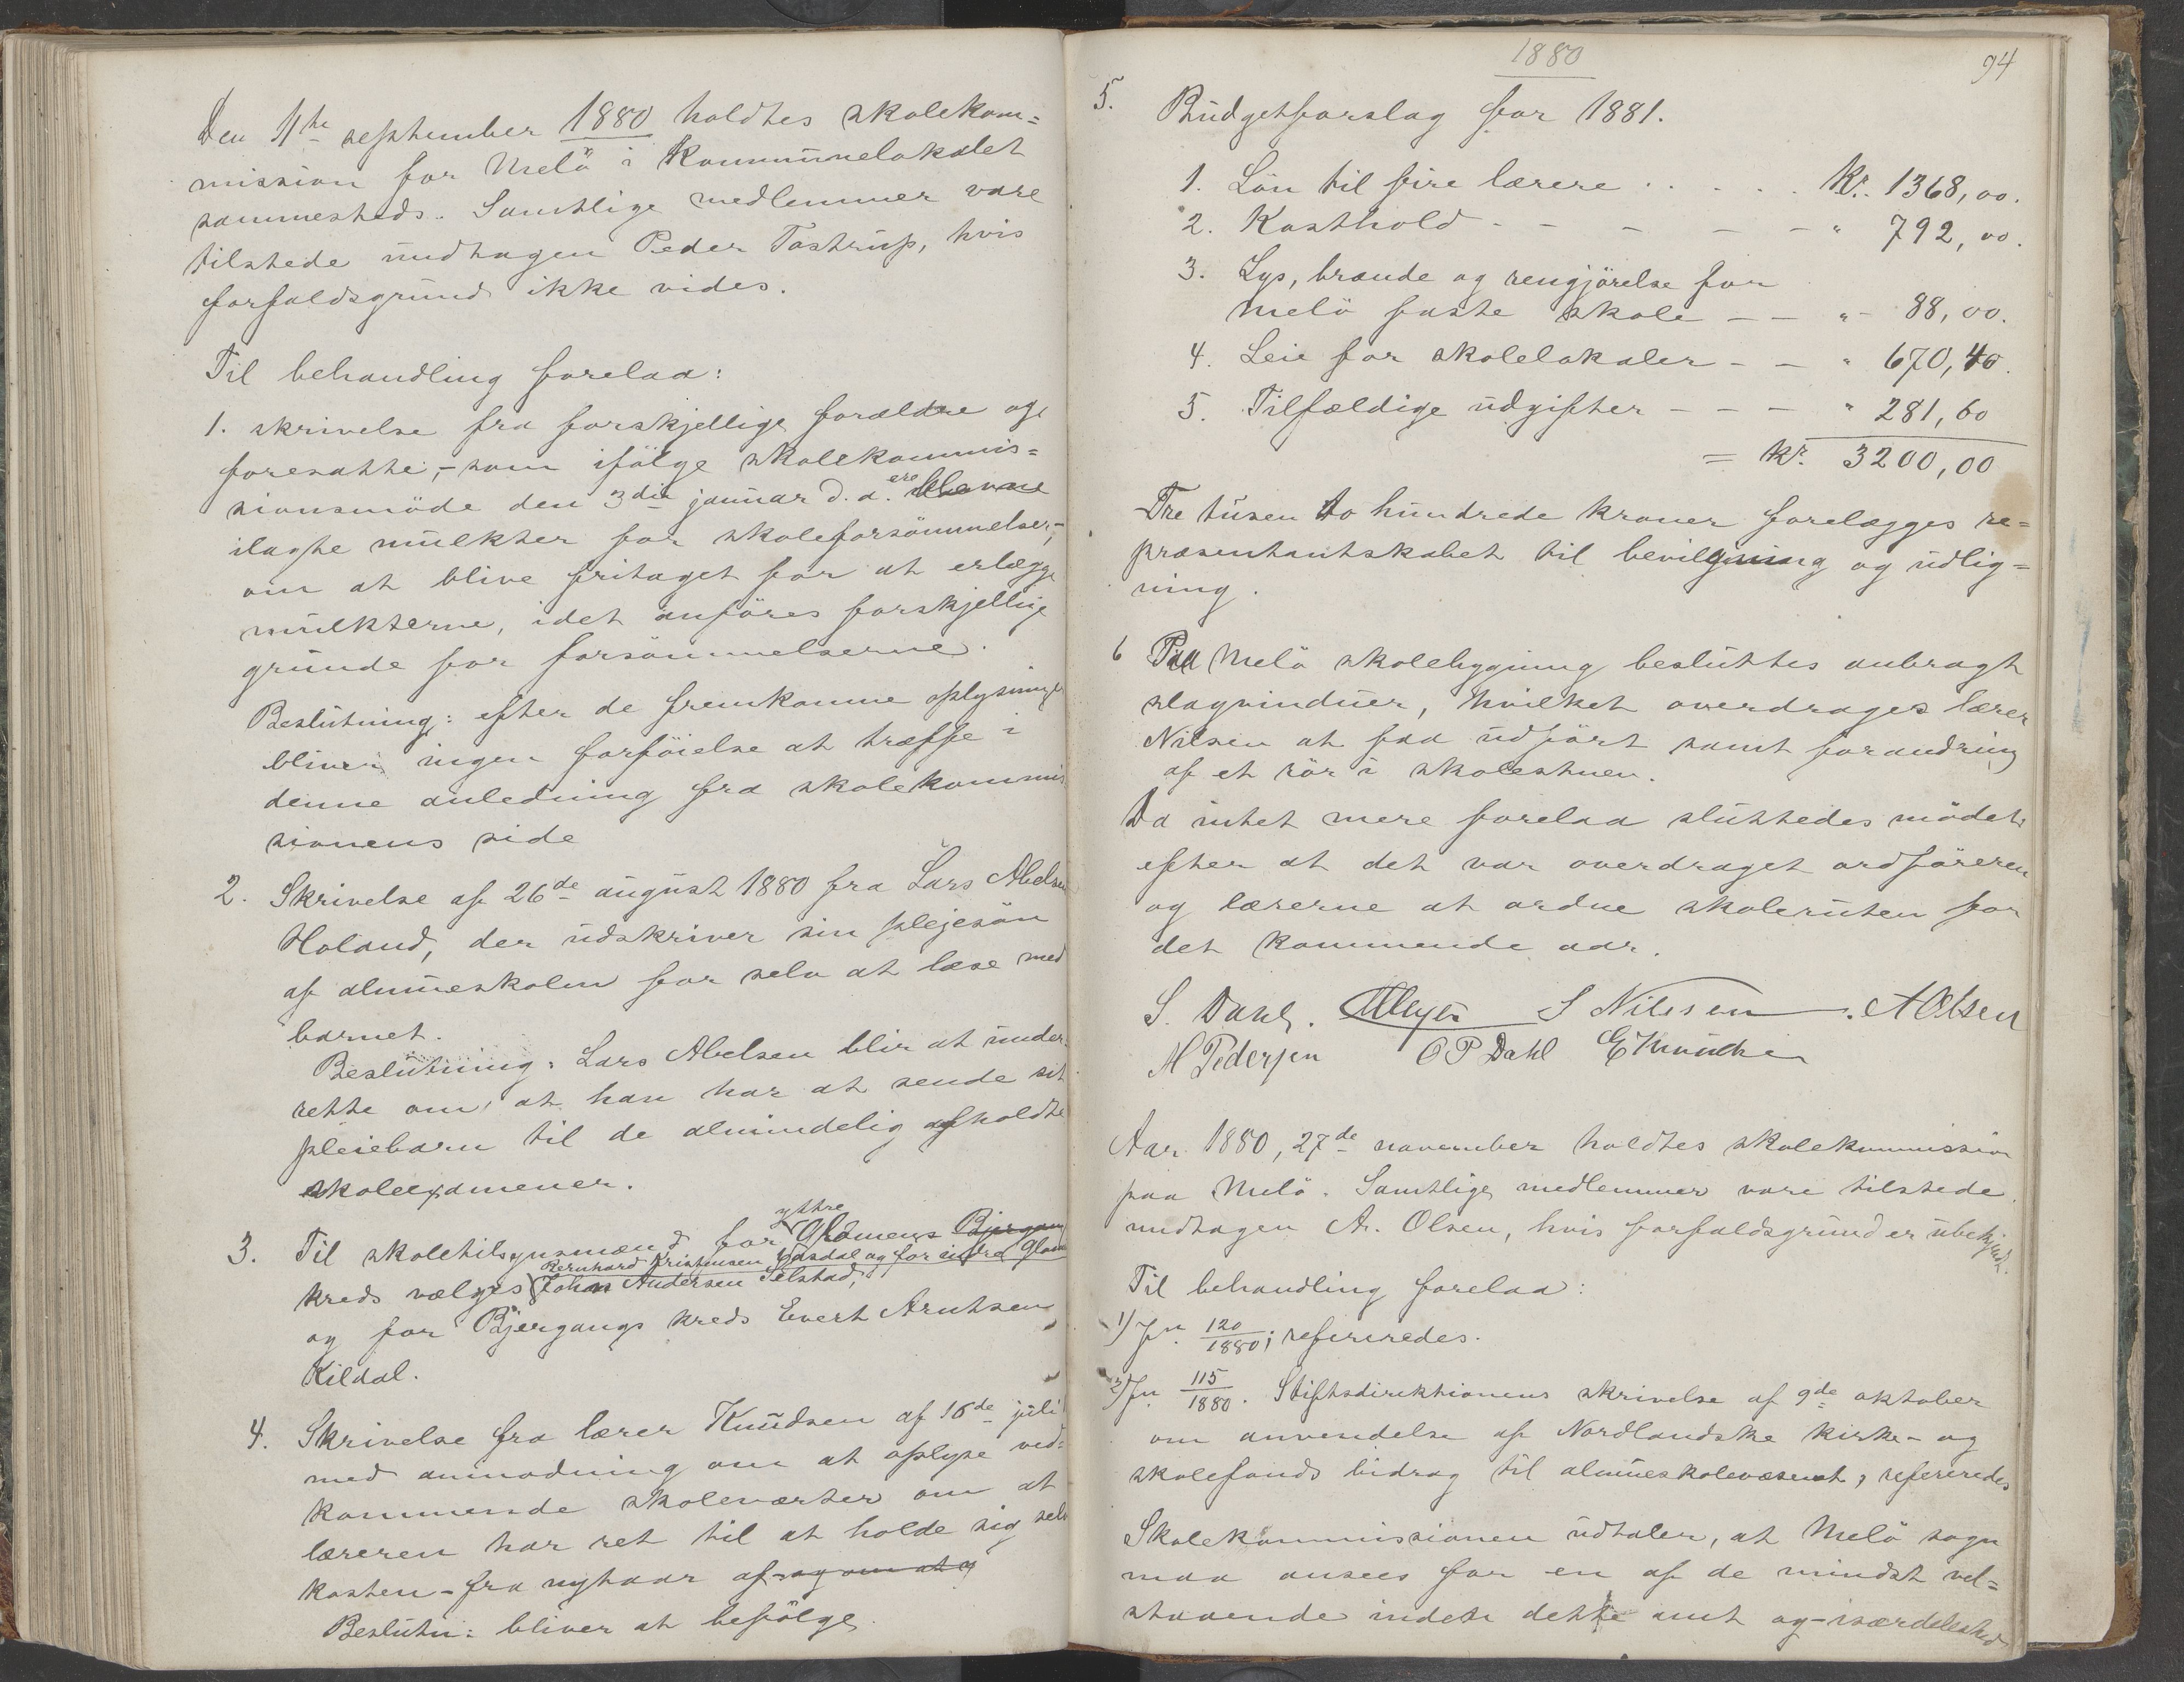 Den 11te september 1880 holdtes skolekom=
mission for Melö i Kommunelokalet
sammesteds. Samtlige medlemmer vare
tilstede undtagen Peder Tostrup, hvis
forfaldsgrund ikke vides.
Til behandling forelaa:
1. skrivelse fra forskjellige forældre og
foresatte, - som ifölge skolekommis=
sionsmöde den 3die januar d. a. ere
ilagte mulkter for skoleforsömmelser, -
om at blive fritaget for at erlægge
mulkterne, idet anföres forskjellige
grunde for forsömmelserne.
Beslutning: efter de fremkomne oplysninge
bliver ingen forföielse at træffe i
denne anledning fra skolekommis
sionens side
2. Skrivelse af 26de august 1880 fra Lars Abelsen
Holand, der udskriver sin plejesön
af almueskolen for selv at læse med
barnet.
Beslutning: Lars Abelsen blir at under
rette om, at han har at sende sit
pleiebarn til de almindelig afholdte
skoleexamener.
3. Til skoletilsynsmænd for ytre Glomens Bjergang
kreds vælges Bernhard Kristensen Vasdal og for indre Glom
Johan Andersen Selstad,
og for Bjergangs kreds Evert Arntsen
Kildal.
4. Skrivelse fra lærer Knudsen af 16de juli
med anmodning om at oplyse ved=
kommende skoleværter om at
læreren har ret til at holde sig selv
kosten - fra nyttaar af og om at og
Beslutn: bliver at befölge
1880
94
5. Budgetforslag for 1881.
1. Lön til fire lærere . . . . . Kr. 1368,00.
2. Kosthold - - - - - " 792,00.
3. Lys, brænde og rengjörelse for
Melö faste skole - - " - 88,00.
4. Leie for skolelokaler - - " 670,40.
5. Tilfældige udgifter - - - " 281,60
= Kr. 3200,00
Tre tusen to hundrede kroner forelægges re=
præsentantskabet til bevilgning og udlig=
ning.
6 Paa Melö skolebygning besluttes anbragt
slagvinduer, hvilket overdrages lærer
Nilsen at faa udfört samt forandring
af et rör i skolestuen.
Da intet mere forelaa sluttedes mödet
efter at det var overdraget ordföreren
og lærerne at ordne skoleruten for
det kommende aar.
S. Dahl. Meyer S Nilssen. A Olsen
M Pedersen O P Dahl E Munche
Aar 1880, 27de november holdtes skolekommission
paa Melö. Samtlige medlemmer vare tilstede
undtagen A. Olsen, hvis forfaldsgrund er ubekjendt.
Til behandling forelaa:
1) Jn. 120/1880; refereredes.
2) Jn 115/1880. Stiftsdirektionens skrivelse af 9de oktober
om anvendelse af Nordlandske kirke- og
skolefonds bidrag til almueskolevæsenet, refereredes
Skolekommissionen udtaler, at Melö sogn
maa ansees for en af de mindst vel=
staaende inden dette amt og - isærdeleshed